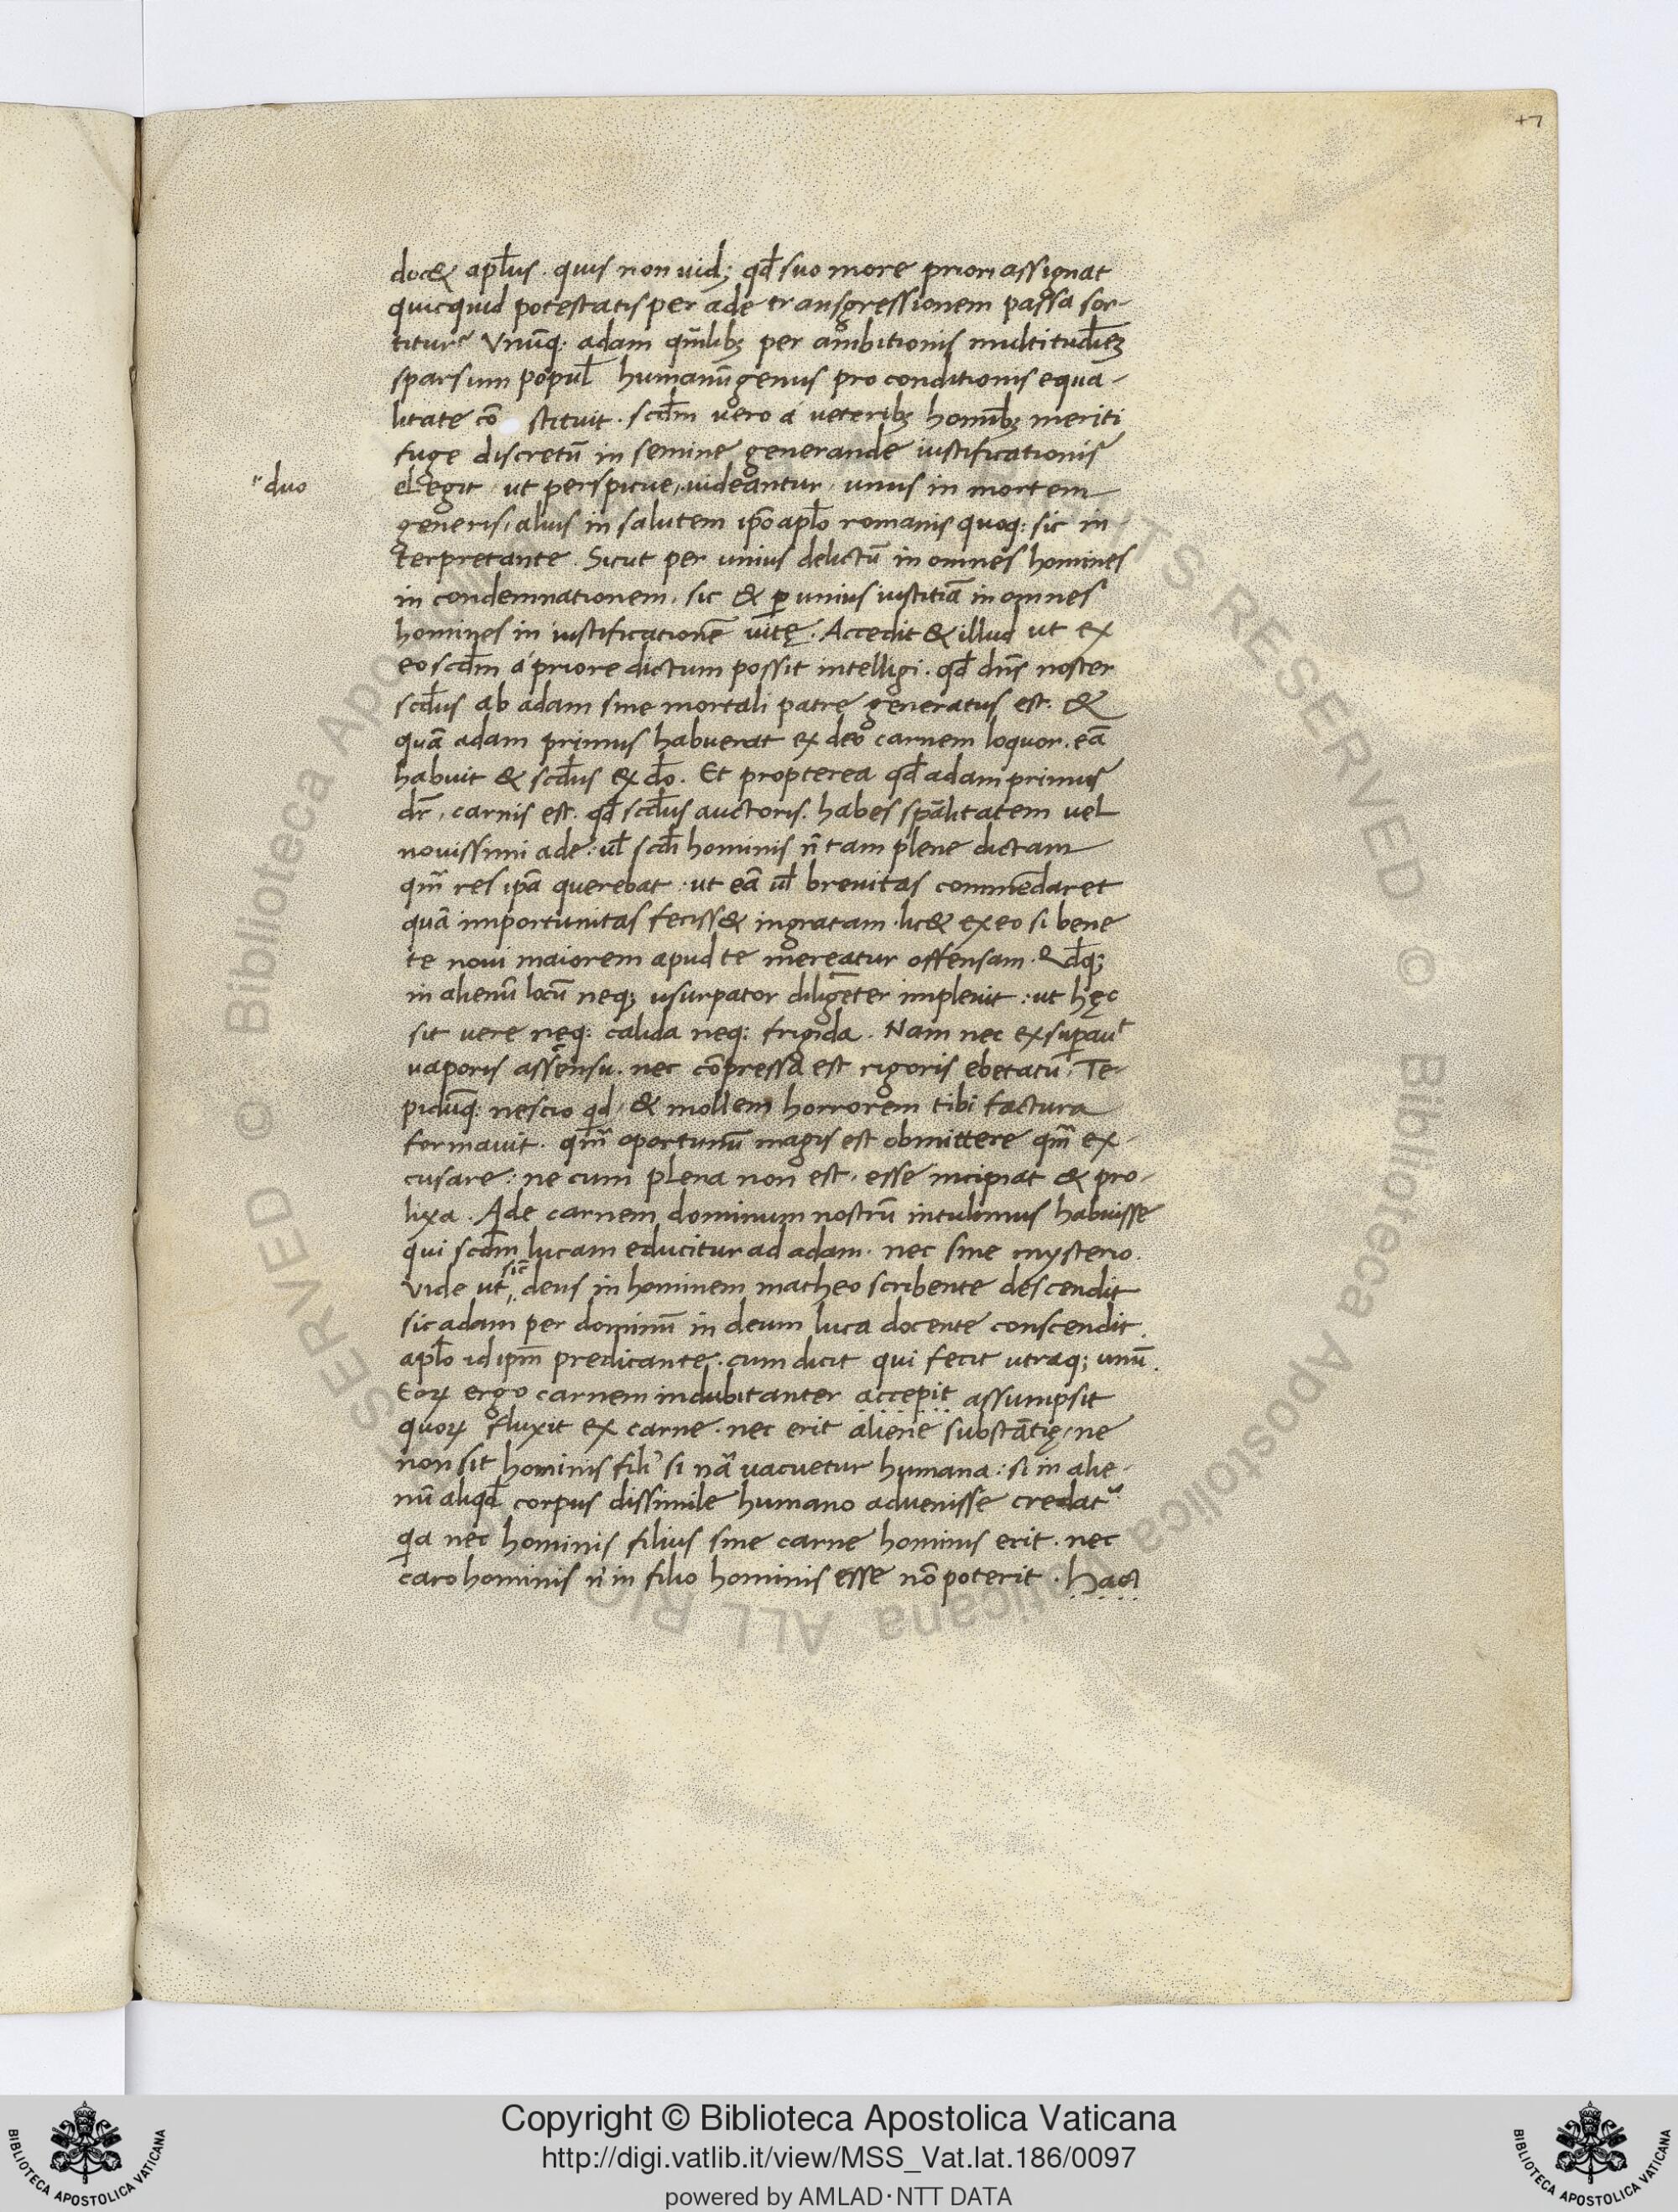 47
doc& apl̄us. quis non uid; qd̄ suo more priori assignat
quicquid potestatis per adę transgressionem passa sor-
titur? Vnūq; adam qm̄lib; per ambitionis multitudiē
sparsim popul̄ humanū genus pro conditionis equa-
litate cō stituit. scdm̄ uero a ueterib; homīb; meriti
fuge discretū in semine generande iustificationis
elegit. ut perspicue, uideantur. unus in mortem
"duo
generis, alius in salutem ip̄o apl̄o romanis quoq; sic in-
terpretante. Sicut per unius delictū in omnes homines
in condemnationem. sic & ꝑ unius iustitiā in omnes
homines in iustificationē uitę. Accedit & illud ut ex
eo scdm̄ a priore dictum possit intelligi. qd̄ dn̄s noster
scd̄us ab adam sine mortali patre generatus est. &
quā adam primus habuerat ex deo carnem loquor. eā
habuit & scd̄us ex d̄o. Et propterea qd̄ adam primus
dr̄, carnis est. qd̄ scd̄us auctoris. habes spāłitatem uel
nouissimi ade: ul̄ scdi̅ hominis n̄ tam plene dictam
qm̄ res ip̄a querebat: ut eā ul̄ breuitas commēdaret
quā importunitas feciss& ingratam. lic& ex eo si bene
te noui maiorem apud te mereatur offensam. Qd̄q;
in alienū locū neq; usurpator diligēter impleuit: ut hęc
sit uere neq; calida neq; frigida. Nam nec exsuꝑauᵗ
uaporis assensu. nec cōpressa est rigoris ebetatu. Te-
pidūq; nescio qd, & mollem horrorem tibi factura
formauit. qm̄ oportunū magis est obmittere qm̄ ex-
cusare: ne cum plena non est. esse incipiat & pro-
lixa. Ade carnem dominum nostrū intulimus habuisse
qui scdm̄ lucam educitur ad adam. nec sine mysterio.
Vide ut sic̄ deus in hominem matheo scribente descendit
sic adam per dominū in deum luca docente conscendit.
apl̄o id ipm̄ predicante. cum dicit qui fecit utraq; unū.
Eoꝝ ergo carnem indubitanter accepit assumpsit
quoꝝ fluxit ex carne. nec erit aliene substātię, ne
non sit hominis fili' si nā uacuetur humana: si in alie-
nū aliqd̄ corpus dissimile humano aduenisse credatᵘ
qa nec hominis filius sine carne hominis erit. nec
caro hominis n' in filio hominis esse nō poterit. hac
Copyright © Biblioteca Apostolica Vaticana
http://digi.vatlib.it/view/MSS_Vat.lat.186/0097
powered by AMLAD·NTT DATA
BIBLIOTECA APOSTOLICA VATICANA
BIBLIOTECA APOSTOLICA VATICANA
© Biblioteca Apostolica Vaticana ALL RIGHTS RESERVED © Biblioteca Apostolica Vaticana ALL RIGHTS RESERVED